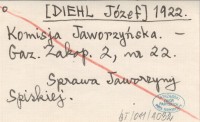 [DIEHL Józef] 1922.
Komisja Jaworzyńska. —
Gaz. Zakop. 2, nr 22.
Sprawa Jaworzyny
Spiskiej.